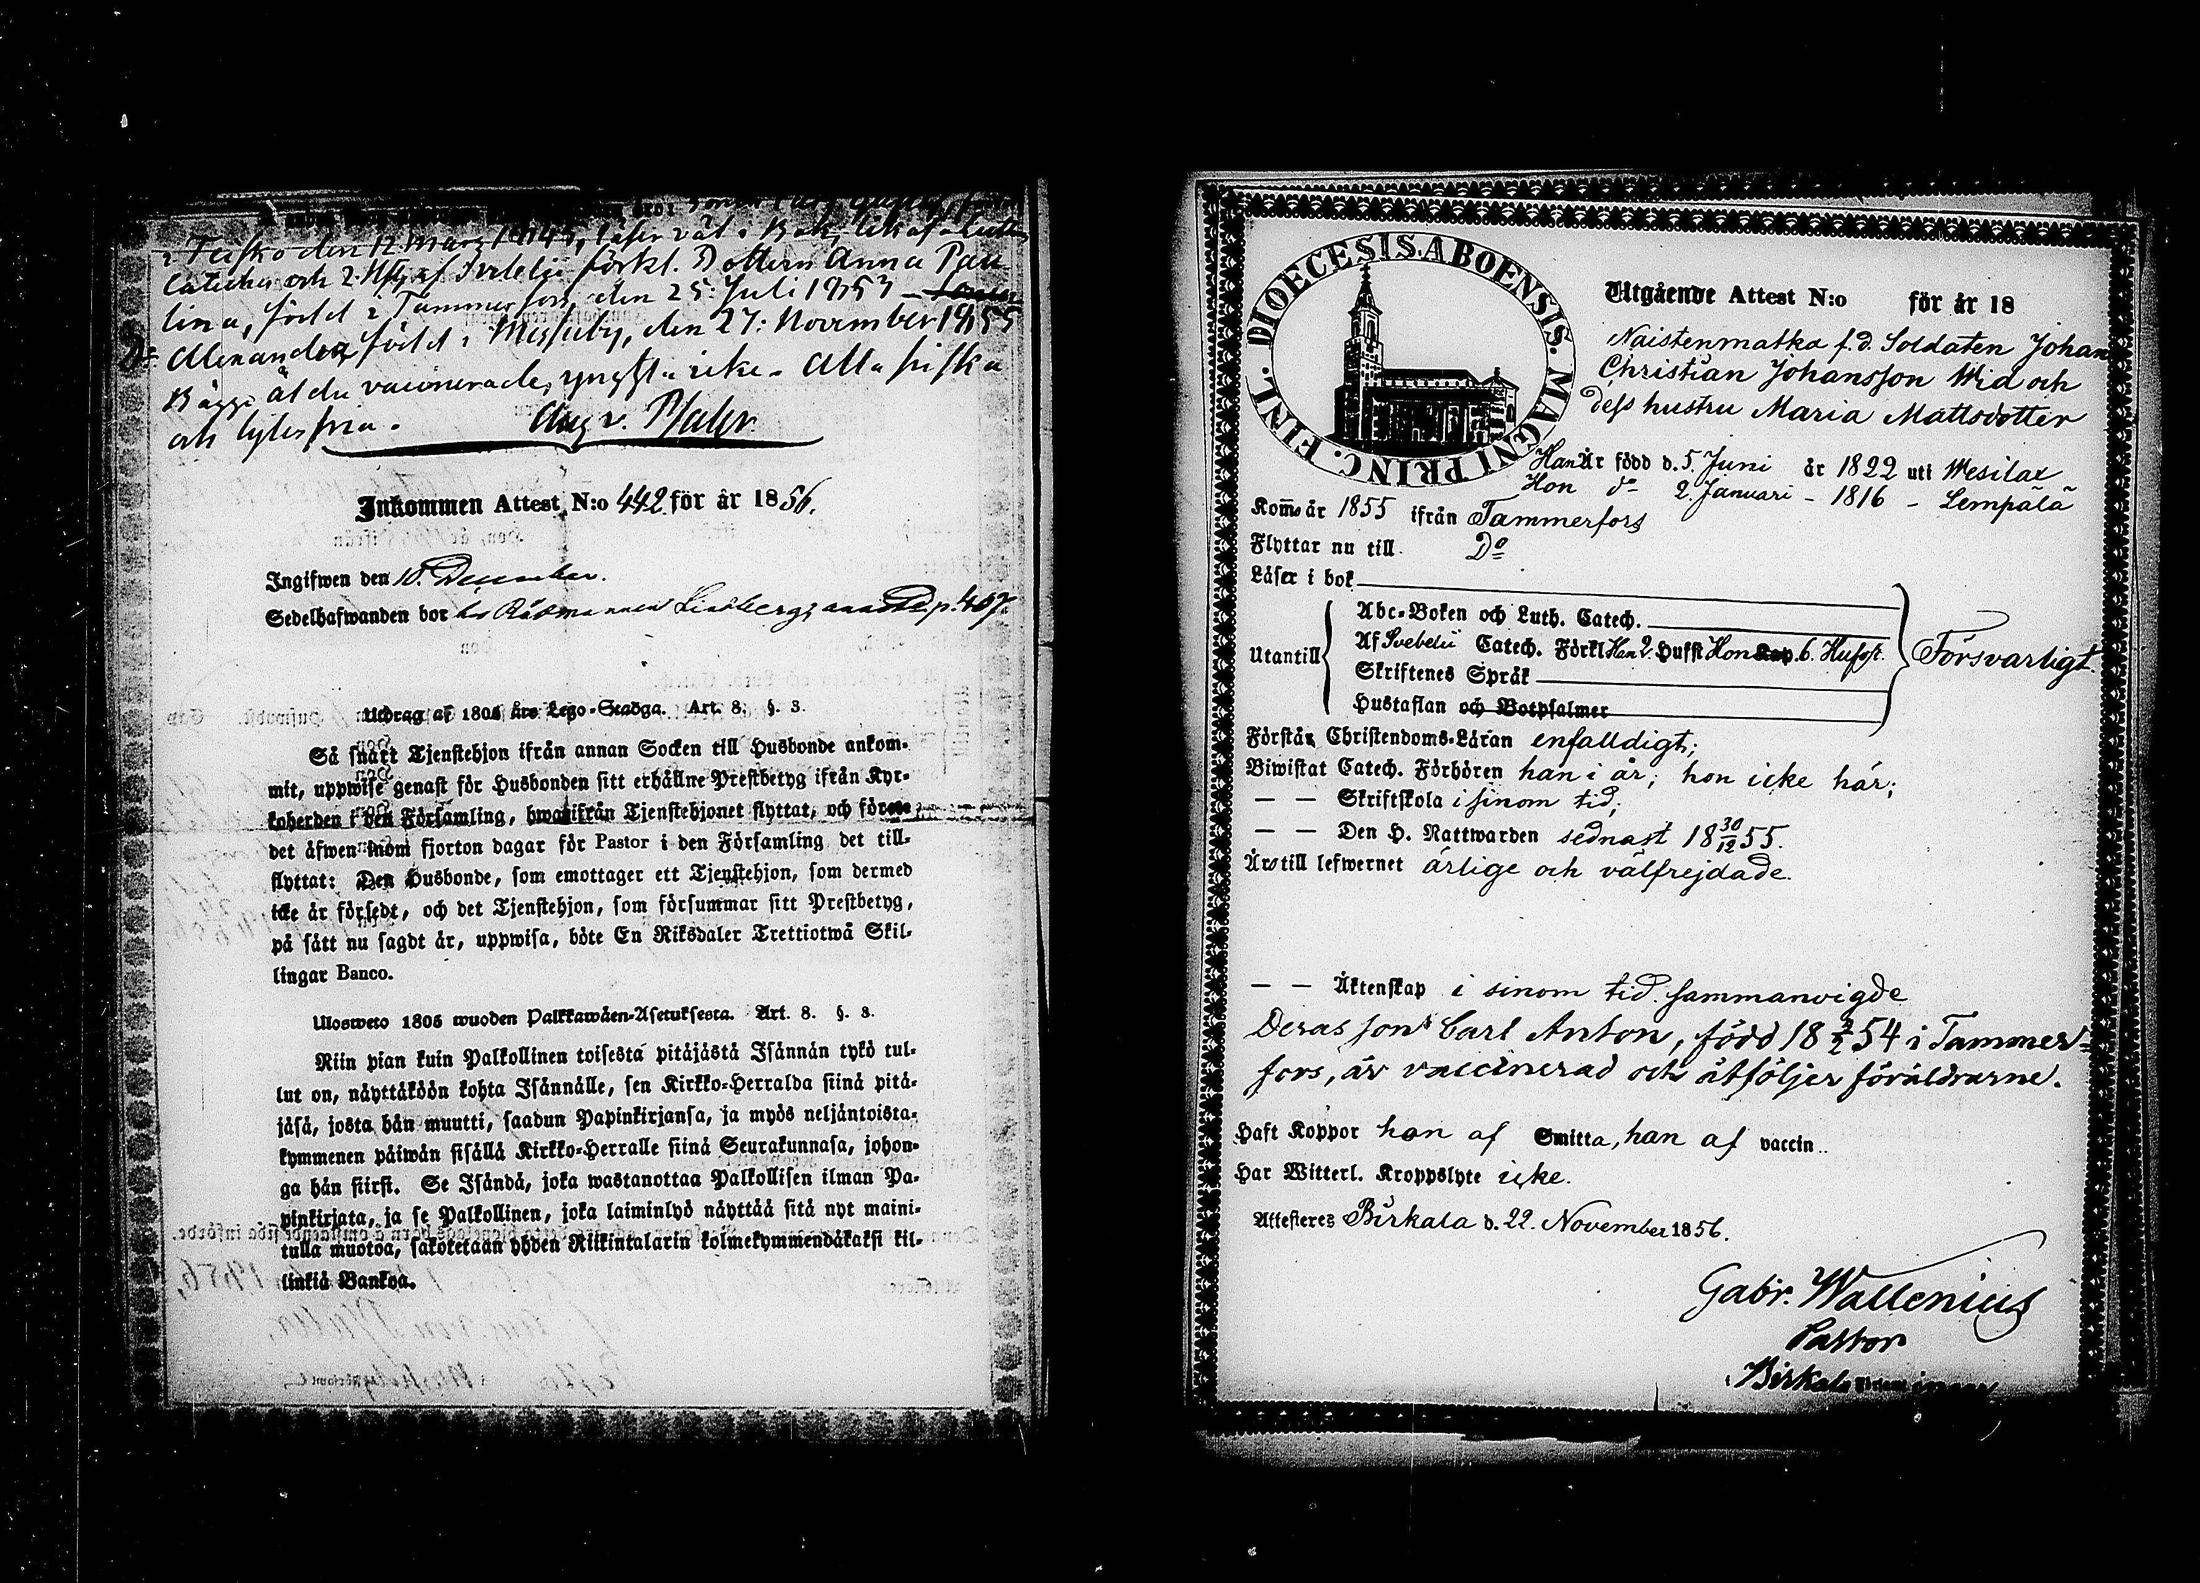 i Teisko den 12 Mars 1845, läser väl i Bok, likaf Luth.
Catechis och 2. Hfst af Svebelii förkl. Dottern Anna Pau
lina, född i Tammerfors, den 25: Juli 1853 –
Do: Alexandra född i Messuby, den 27: November 1855
Bägge äldre vaccinerade, yngsta icke. Alla friska
och lytesfria. Aug v. Pfaler
Inkommen Attest N:o 442 för år 1856.
Ingifwen den 10. December.
Sedelhafwanden bor hos Rådmannen Lindberg, p. 467.
Utdrag af 1805 års Lego-Stadga. Art. 8. §. 3.
Så snart Tjenstehjon ifrån annan Socken till Husbonde ankom-
mit, uppwise genast för Husbonden sitt erhållne Prestbetyg ifrån Kyr-
koherden i den Församling, hwarifrån Tjenstehjonet flyttat, och förete
det äfwen inom fjorton dagar för Pastor i den Församling det till-
flyttat: Den Husbonde, som emottager ett Tjenstehjon, som dermed
icke är försedt, och det Tjenstehjon, som försummar sitt Prestbetyg,
på sätt nu sagdt är, uppwisa, böte En Riksdaler Trettiotwå Skil-
lingar Banco.
Ulosweto 1805 wuoden Palkkawäen-Asetuksesta. Art. 8. §. 3.
Niin pian kuin Palkollinen toisesta pitäjästä Isännän tykö tul-
lut on, näyttäköön kohta Isännälle, sen Kirkko-Herralda siinä pitä-
jäsä, josta hän muutti, saadun Papinkirjansa, ja myös neljäntoista-
kymmenen päiwän sisällä Kirkko-Herralle siinä Seurakunnasa, johon-
ga hän siirsi. Se Isändä, joka wastanottaa Palkollisen ilman Pa-
pinkirjata, ja se Palkollinen, joka laiminlyö näyttää sitä nyt maini-
tulla muotoa, sakotetaan yhden Riikintalarin kolmekymmendäkaksi kil-
linkiä Bankoa.
DIOECESIS. ABOENSIS. MAGNI PRINC. FINL.
Utgående Attest N:o för år 18
Naistenmatka f. d. Soldaten Johan
Christian Johansson Wid och
dess hustru Maria Mattsdotter
Han Är född d. 5. Juni år 1822 uti Wesilax
Hon do 2. Januari – 1816 – Lempälä
Kom år 1855 ifrån Tammerfors
Flyttar nu till Do
Läser i bok
Utantill
Abc-Boken och Luth. Catech.
Af Svebelii Catech. Förkl Han 2. Hufst Hon Kap. 6. Hufst.
Skriftenes Språk
Hustaflan och Botpsalmer
Försvarligt
Förstår Christendoms-Läran enfalldigt;
Biwistat Catech. Förhören han i år; hon icke här;
— — Skriftskola i sinom tid;
— — Den H. Nattwarden sednast 18 30/12 55.
Äro till lefwernet ärlige och välfrejdade.
— — Äktenskap i sinom tid sammanvigde
Deras son Carl Anton, född 18 2/2 54 i Tammer-
fors, är vaccinerad och åtföljer föräldrarne.
Haft Koppor hon af Smitta, han af vaccin..
Har Witterl. Kroppslyte icke.
Attesteres Birkala d. 22. November 1856.
Gabr. Wallenius
Pastor
Birkala